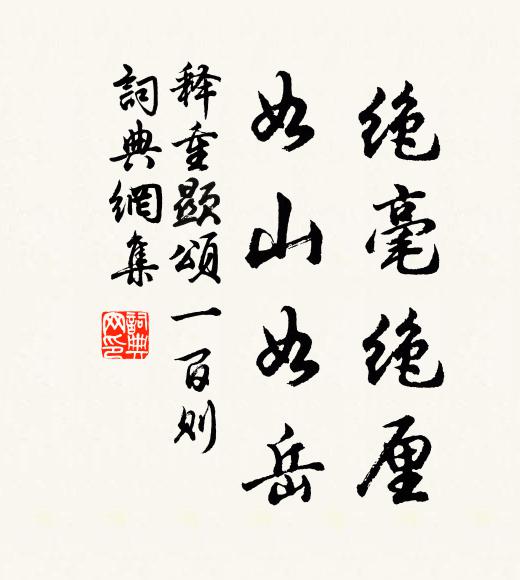 绝毫绝厘
如山如岳
释重顯頌一百则
詞典網集
詞典
网印